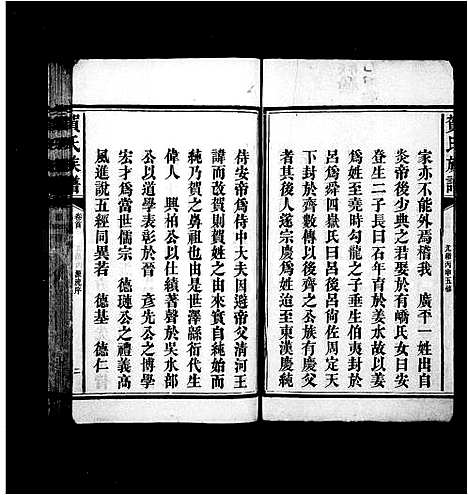 賀氏族譜
光緒丙申五修
家亦不能外焉稽我　廣平一姓出自
炎帝後少典之君娶於有嶠氏女曰安
登生二子長曰石年育於姜水故以姜
為姓至堯時勾龍之子垂生伯夷封於
呂為舜四嶽氏曰呂後呂尚佐周定天
下封於齊數傳以後齊之公族有慶父
者其後人遂宗慶為姓迨至東漢慶純
侍安帝為侍中大夫因避帝父清河王
諱而改賀則賀姓之由來實自純初而
純乃賀之鼻祖也由是世澤縣衍代生
偉人　興柏公以績著於吳水部
公以道學表彰於晉　彥先公之博學
宏才為當世儒宗　德璉公之禮義高
風進說五經同異若　德基　德仁
賀氏族譜
卷首
源流序
二